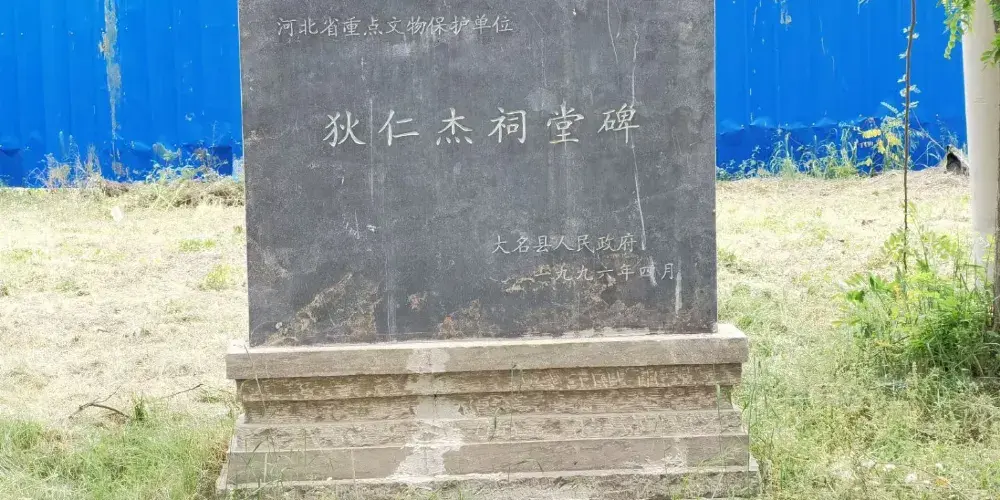 河北省重点文物保护单位
狄仁杰祠堂碑
大名县人民政府
一九九六年四月